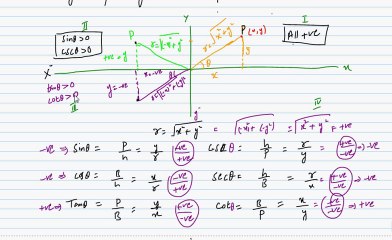 II Y I
Sinθ>0
cscθ>0
+ve = y P r=√(-x)²+y² r=√x²+y² P (x,y)
All +ve
y
θ
X' x x
x=-ve
tanθ>0
cotθ>0
y=-ve
r=√(-x)²+(-y)²
III y' IV
r=√x²+y² = √(-x)²+(-y)² = √x²+y² = +ve
-ve ⇒ Sinθ = P/h = y/r = -ve/+ve cscθ = h/P = r/y = +ve/-ve ⇒ -ve
-ve ⇒ cosθ = B/h = x/r = -ve/+ve secθ = h/B = r/x = +ve/-ve ⇒ -ve
+ve ⇒ Tanθ = P/B = y/x = -ve/-ve cotθ = B/P = x/y = -ve/-ve ⇒ +ve